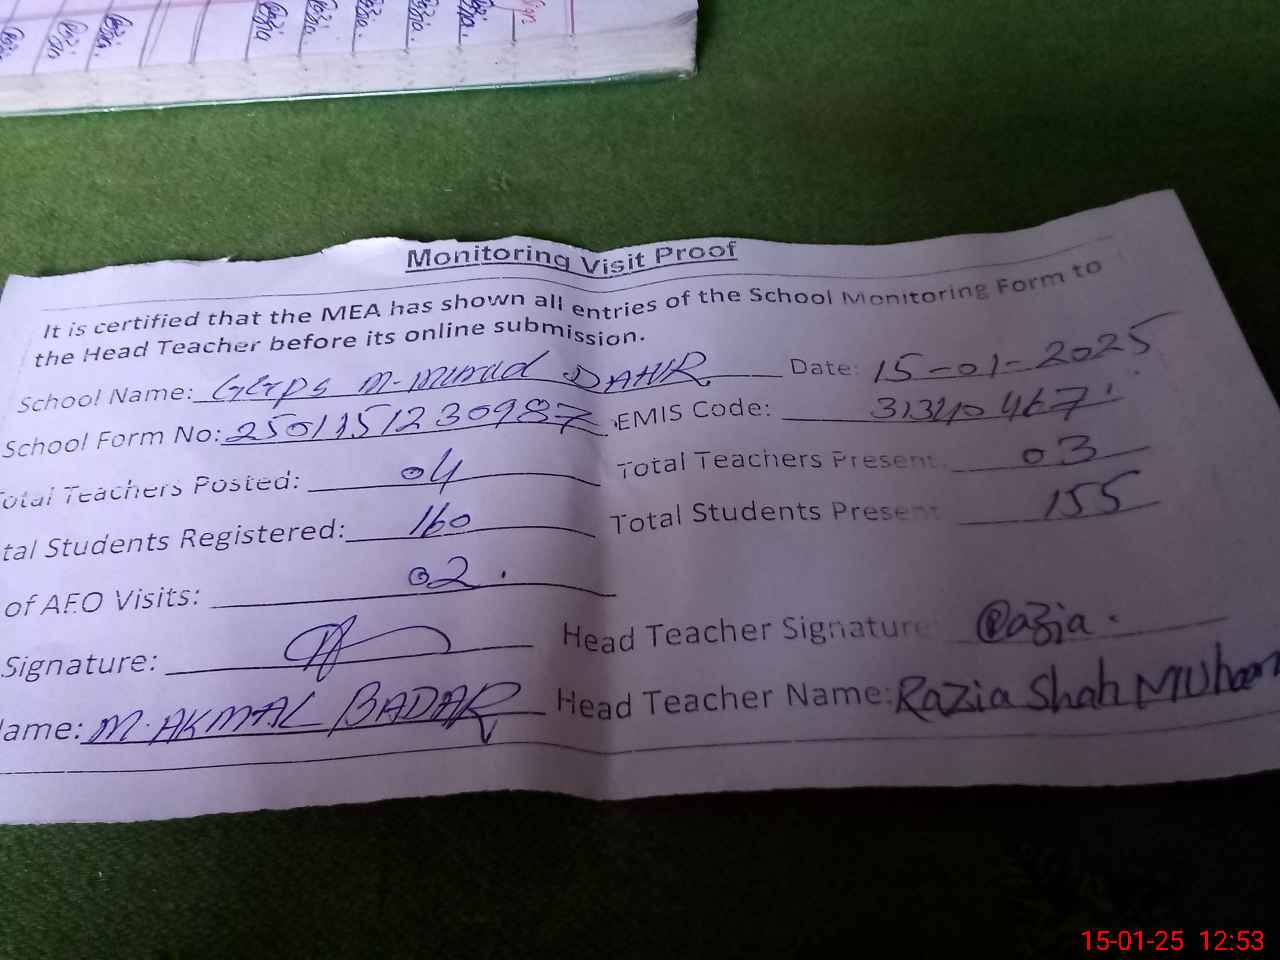 Sign
Razia.
Razia.
Razia.
Razia
Monitoring Visit Proof
It is certified that the MEA has shown all entries of the School Monitoring Form to
the Head Teacher before its online submission.
School Name: GGPS M-Murad DAHR Date: 15-01-2025
School Form No: 2501151230987 EMIS Code:
Total Teachers Posted: 04 Total Teachers Present: 03
tal Students Registered: 160 Total Students Present 155
of AEO Visits: 02.
Signature: Head Teacher Signature: Razia.
ame: M. AKMAL BADAR Head Teacher Name: Razia Shah
15-01-25 12:53